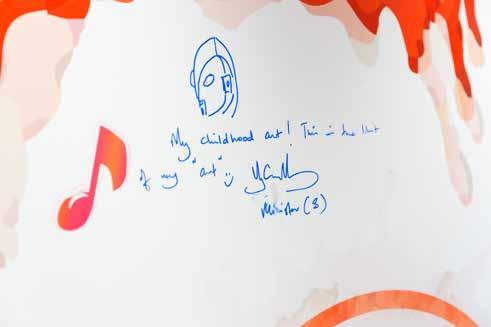 My childhood art! This is the limit
of my "art" :)
Minister (S)